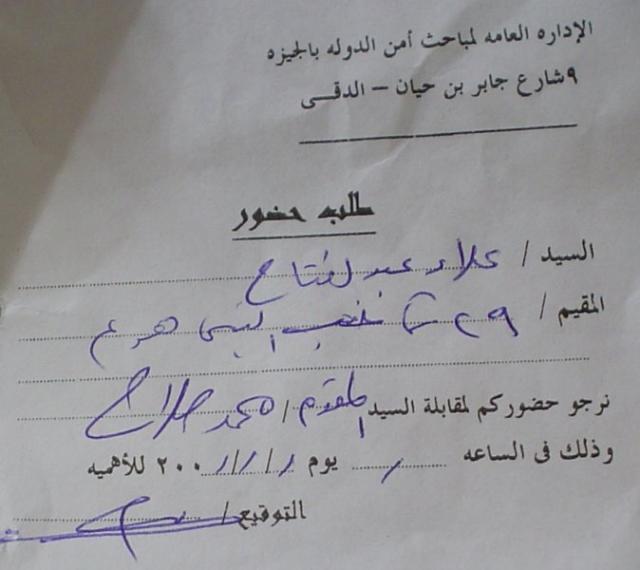 الإداره العامه لمباحث أمن الدوله بالجيزه
٩ شارع جابر بن حيان - الدقى
طلب حضور
السيد / علاء عبد لفتاح
المقيم / هرم
نرجو حضوركم لمقابلة السيد المقدم / محمد صلاح
وذلك فى الساعه يوم / / ٢٠٠ للأهميه
التوقيع /